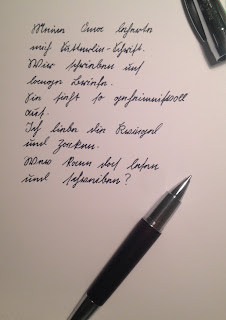 Meine Oma lehrte
mich Sütterlin-Schrift.
Wir schrieben uns
lange Briefe.
Sie sieht so geheimnisvoll
aus.
Ich liebe die Kringel
und Zacken.
Wer kann das lesen
und schreiben?